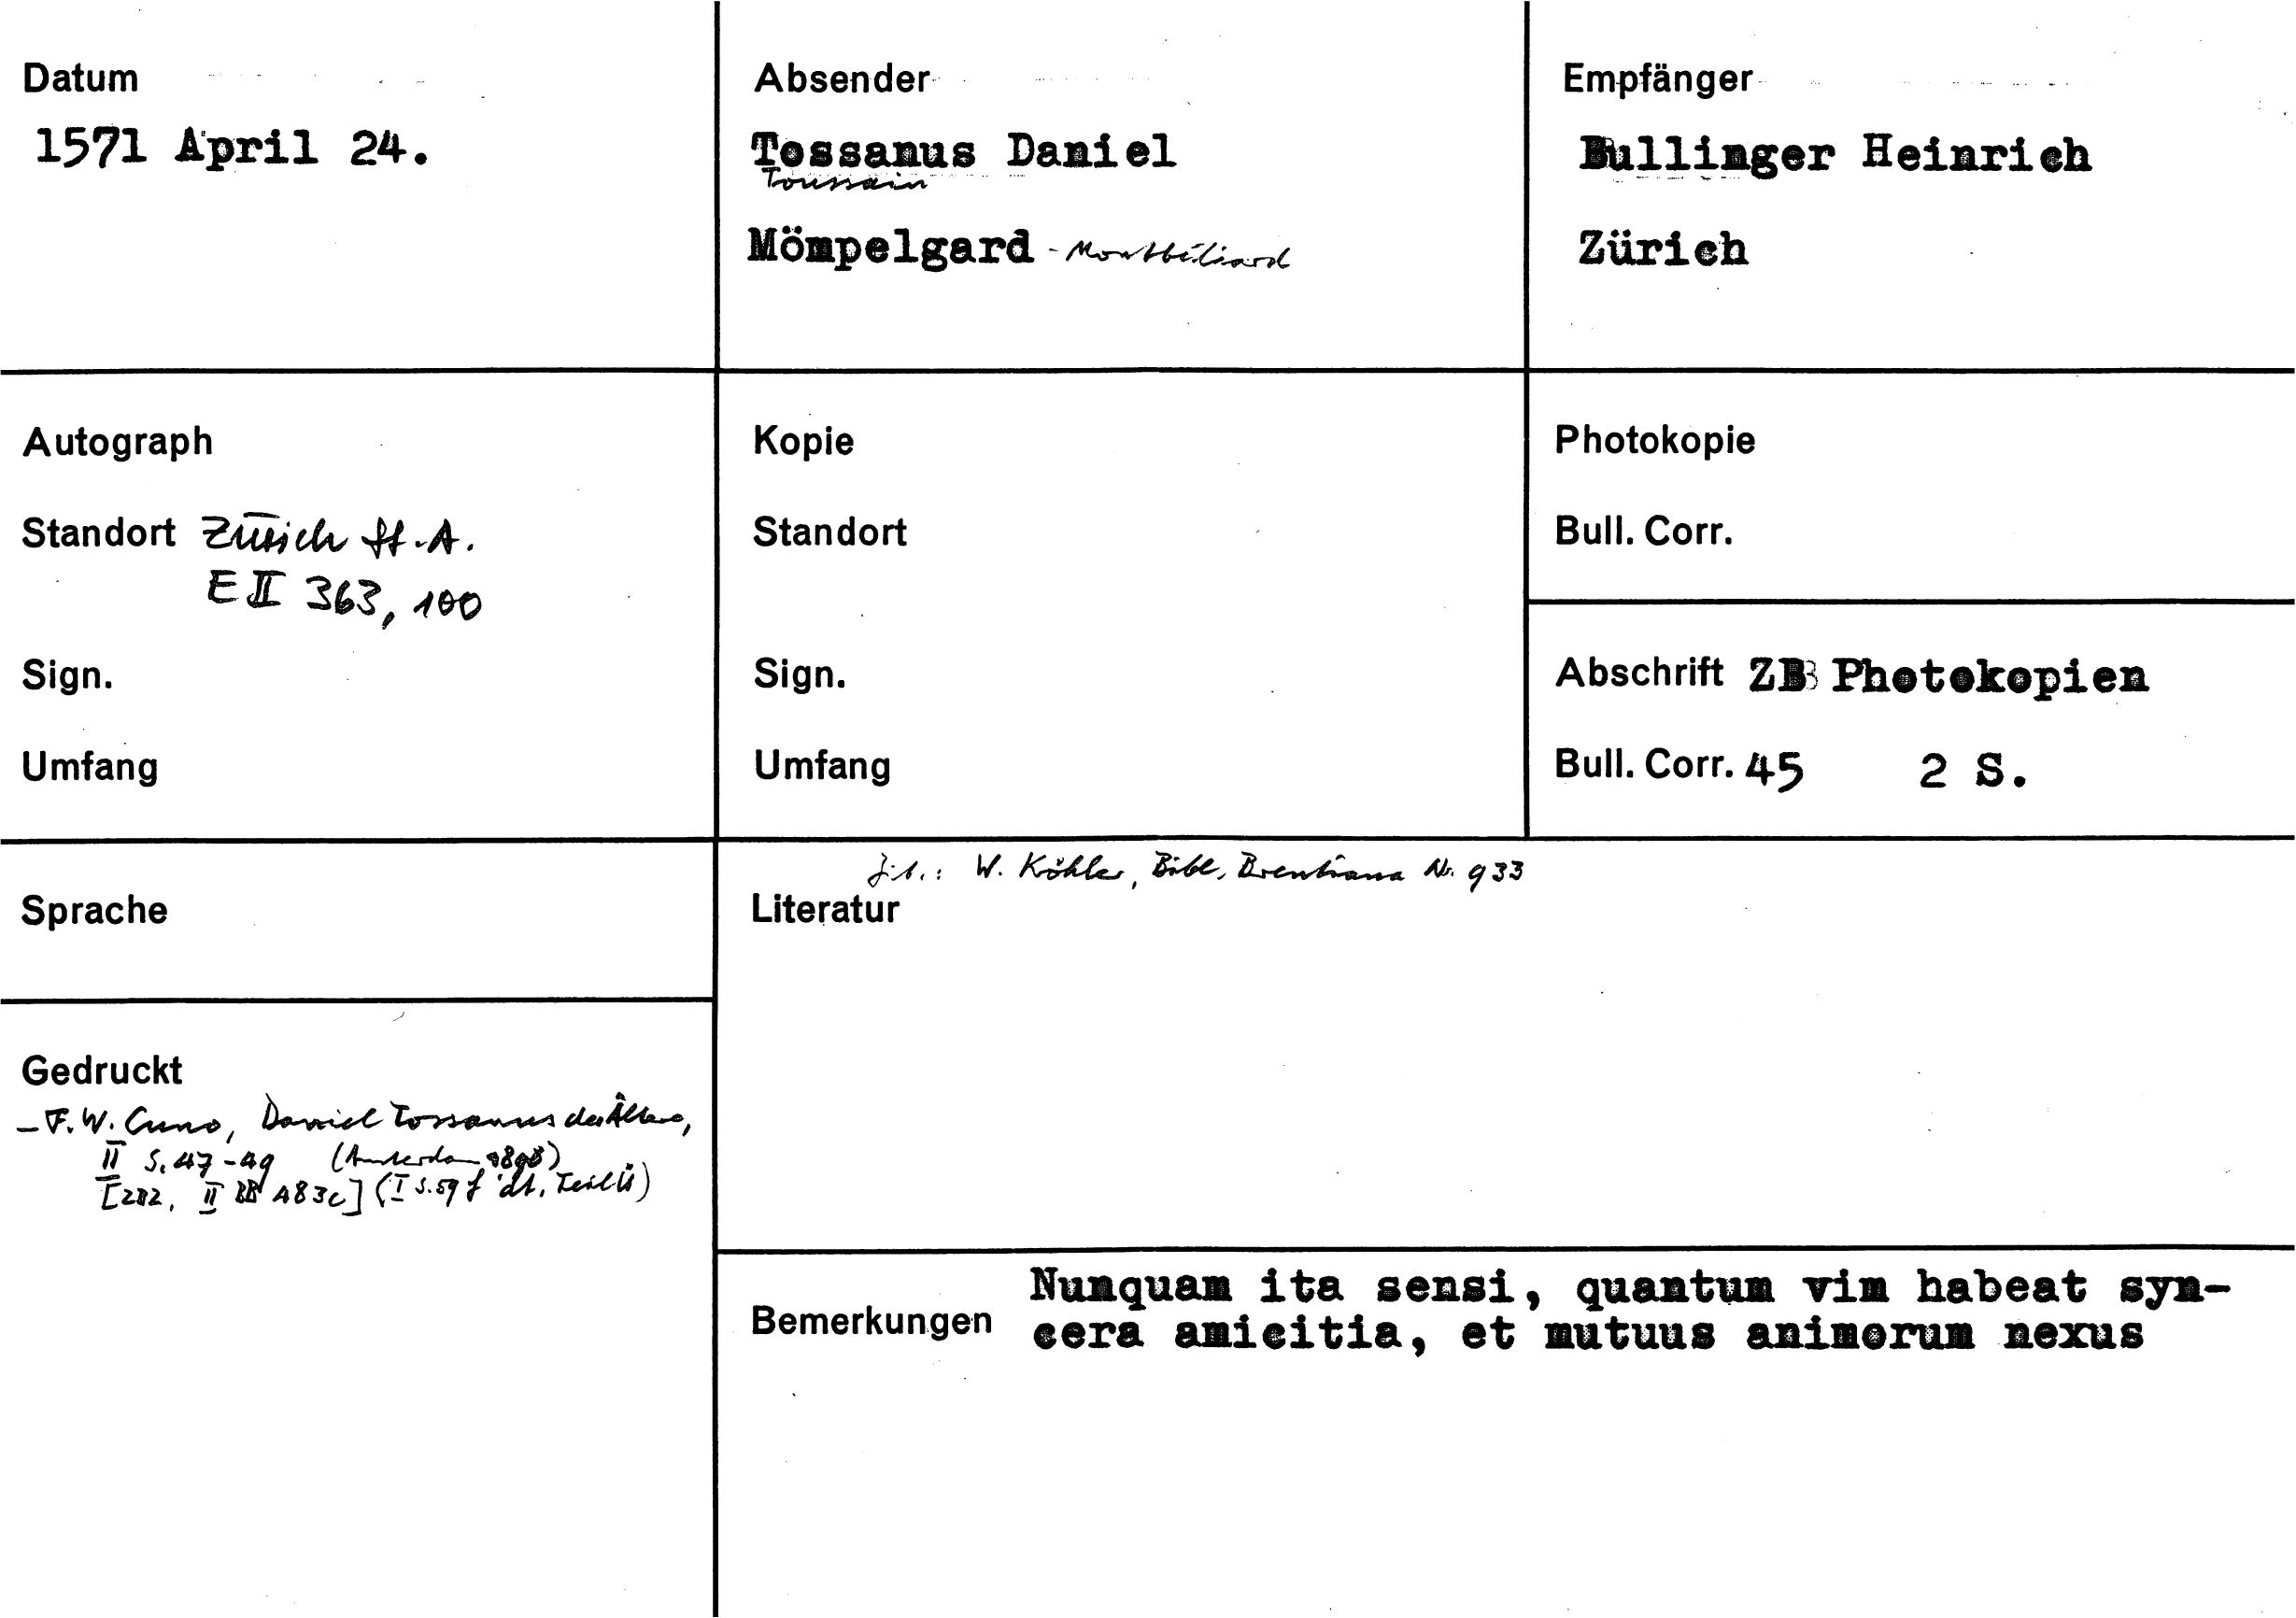 Datum
1571 April 24.
Absender
Tossanus Daniel
Toussain
Mömpelgard - Montbéliard
Empfänger
Bullinger Heinrich
Zürich
Autograph
Standort Zürich St.A.
E II 363, 100
Sign.
Umfang
Kopie
Standort
Sign.
Umfang
Photokopie
Bull. Corr.
Abschrift ZB Photokopien
Bull. Corr. 45 2 S.
Sprache
Gedruckt
- F.W. Cuno, Daniel Tossanus der Ältere,
II S. 47-49 (Amsterdam 1898)
II BB 483c] (I S. 59 f dt.
Zit.: W. Köhler, Bibl. Brentiana Nr. 933
Literatur
Bemerkungen
Nunquam ita sensi, quantum vim habeat syn-
cera amicitia, et mutuus animorum nexus